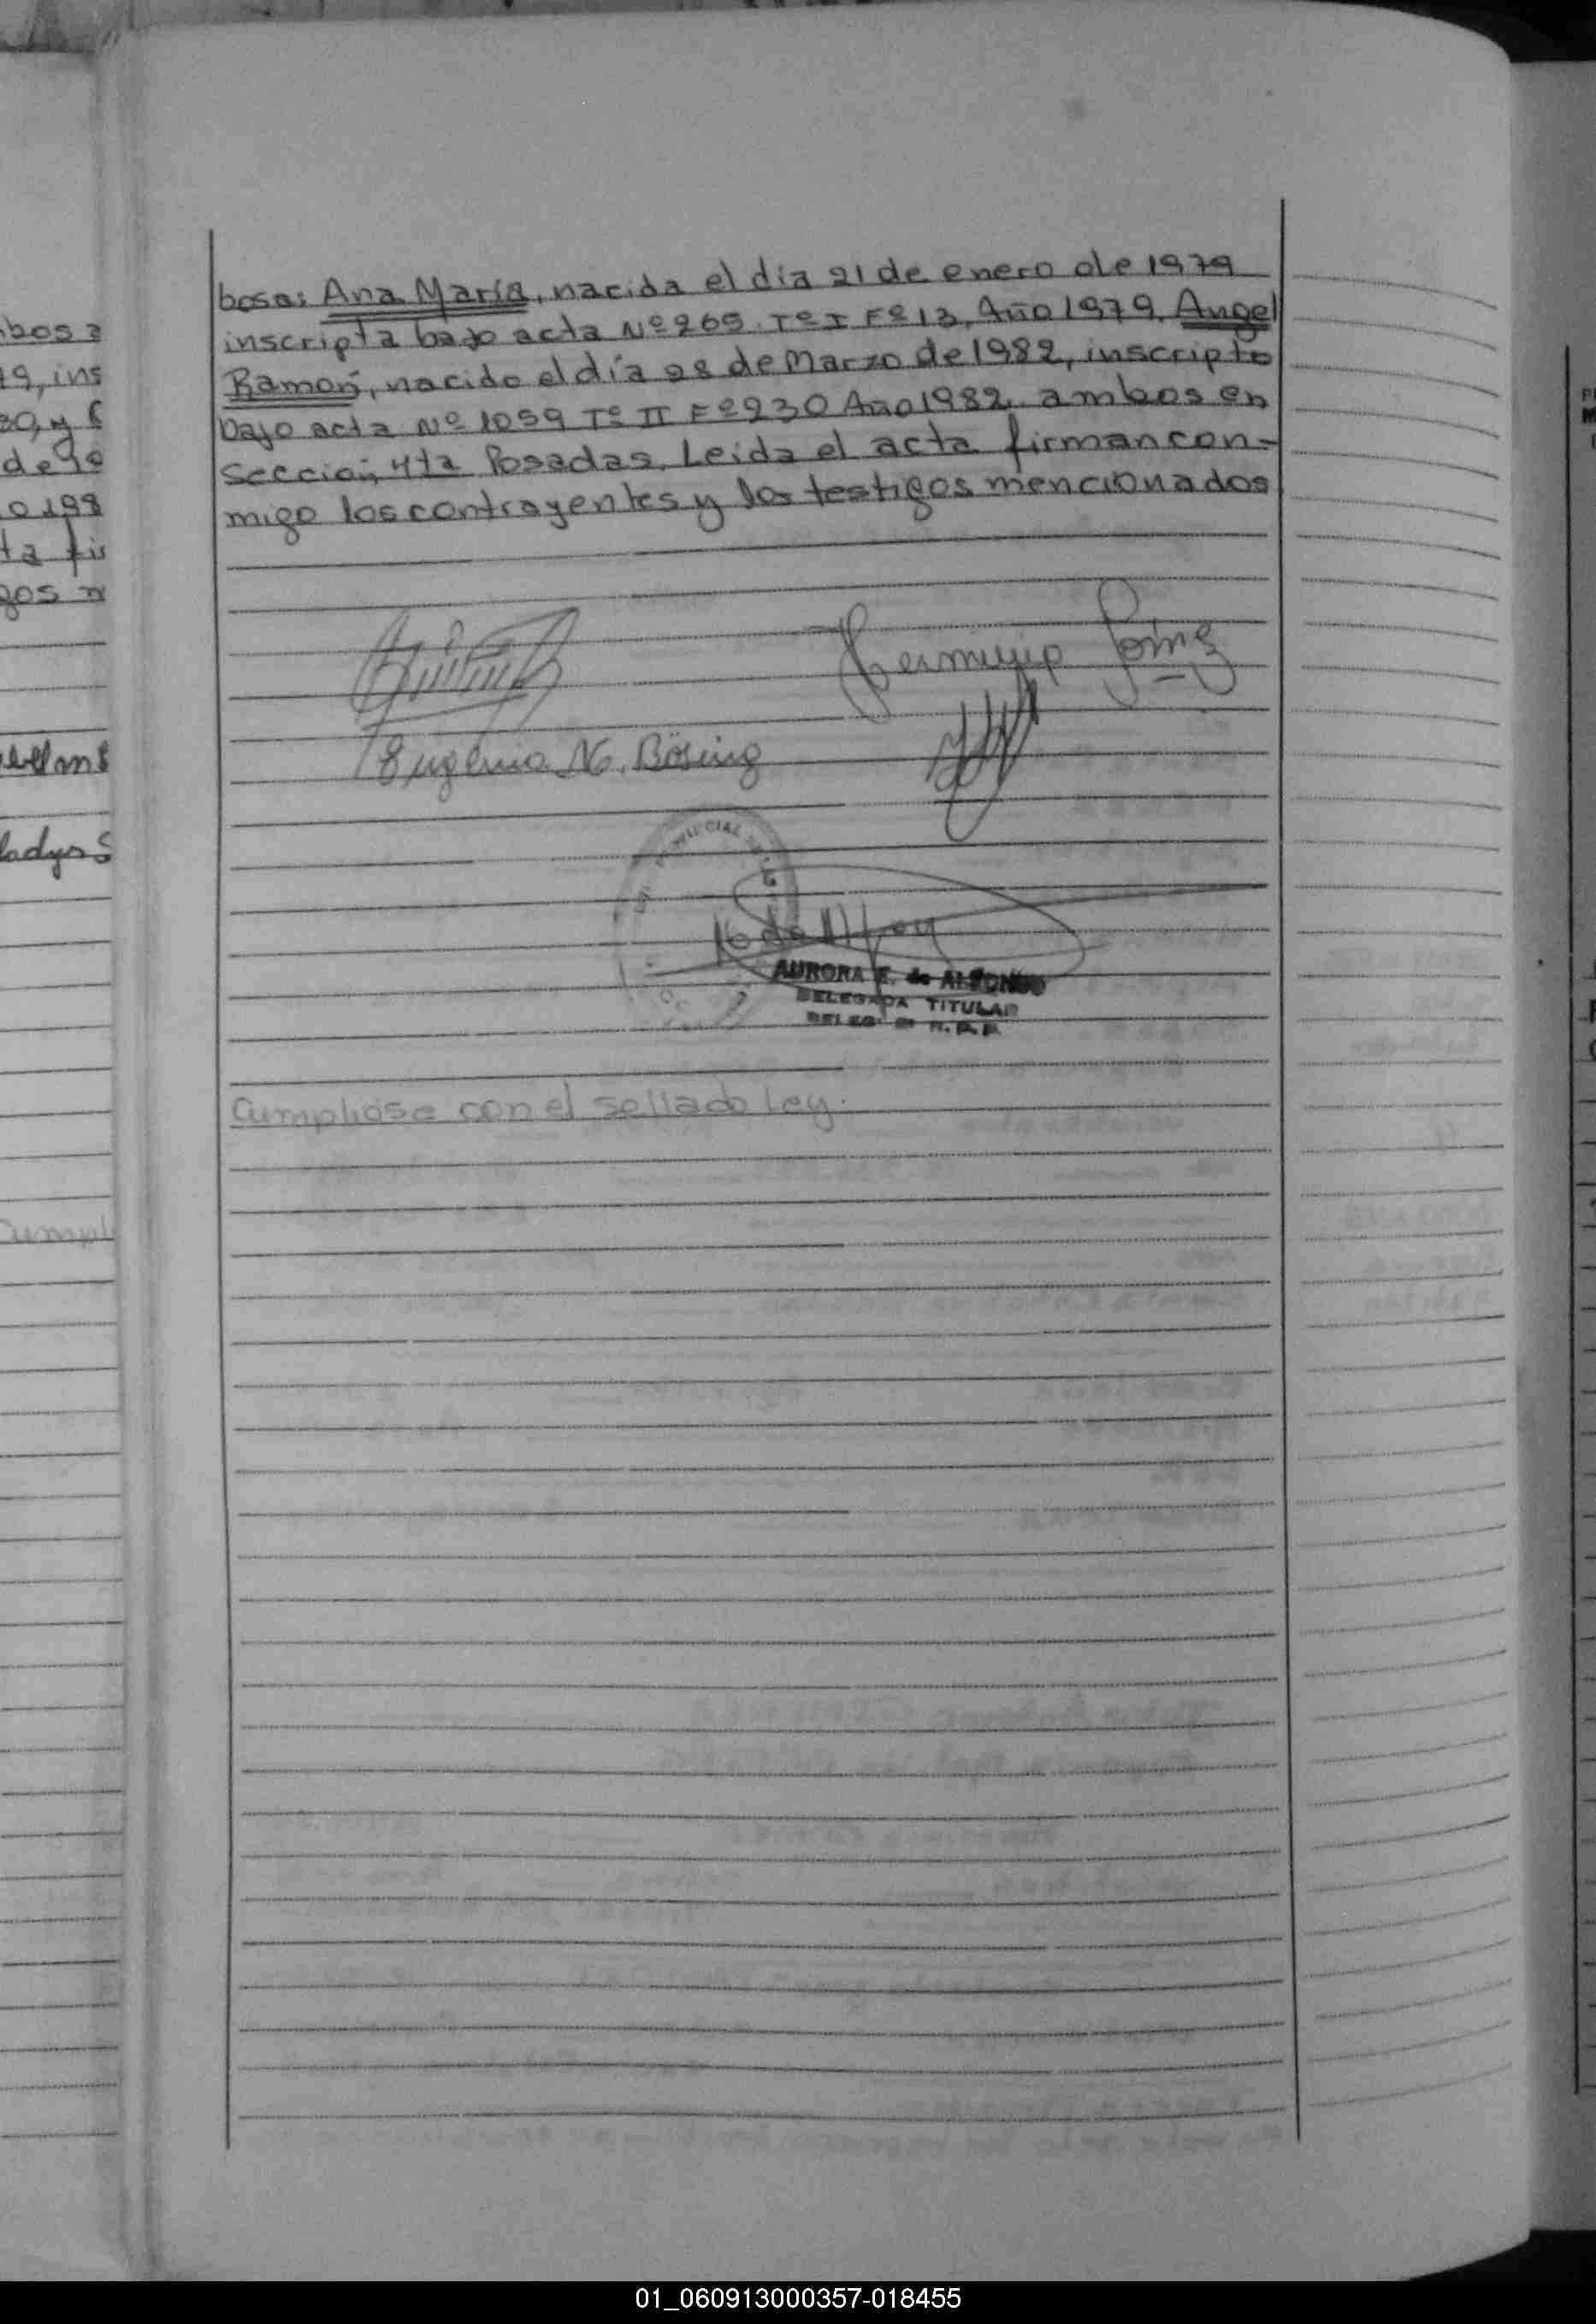 bosa: Ana María, nacida el día 21 de enero de 1979
inscripta bajo acta Nº 265 Tº I Fº 13, Año 1979, Angel
Ramón, nacido el día 28 de Marzo de 1982, inscripto
bajo acta Nº 1059 Tº II Fº 230 Año 1982. ambos en
Sección 4ta Posadas. Leida el acta firman con-
migo los contrayentes y los testigos mencionados
Eugenia N. Bösing
AURORA E. de ALFONSO
DELEGADA TITULAR
Cumpliose con el sellado Ley.
bos a
79, ins
30, y
de
o 198
ta fir
gos
ladys S
Cumpl
01_060913000357-018455